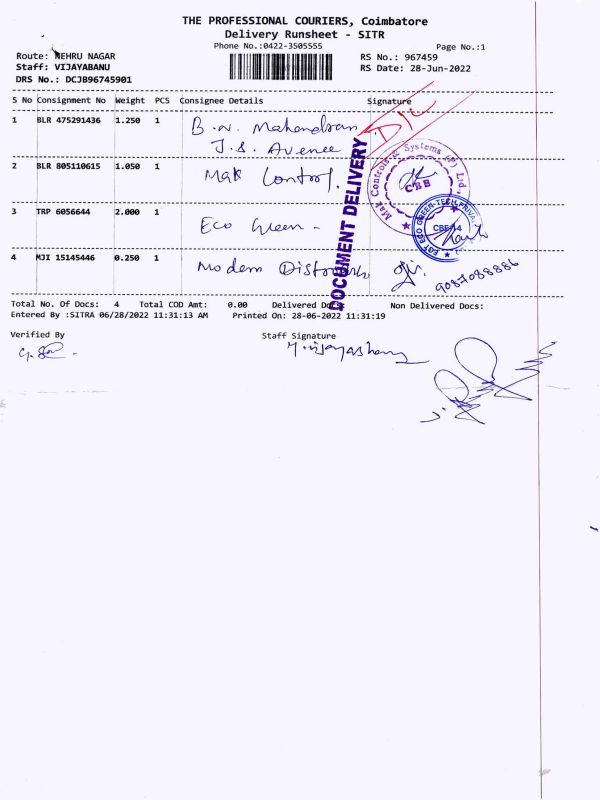 THE PROFESSIONAL COURIERS, Coimbatore
Delivery Runsheet - SITR
Phone No.:0422-3505555
Page No.:1
Route: NEHRU NAGAR
RS No.: 967459
Staff: VIJAYABANU
RS Date: 28-Jun-2022
DRS No.: DCJB96745901
S No Consignment No Weight PCS Consignee Details Signature
1 BLR 475291436 1.250 1 B.N. Mahendran D/L
J.S. Avenee
2 BLR 805110615 1.050 1 Mak Control.
Mak Controls & Systems (P) Ltd.
CBB
3 TRP 6056644 2.000 1 Eco Green -
4 MJI 15145446 0.250 1 Modern 9087088886
DOCUMENT DELIVERY
Total No. Of Docs: 4 Total COD Amt: 0.00 Delivered Docs: Non Delivered Docs:
Entered By :SITRA 06/28/2022 11:31:13 AM Printed On: 28-06-2022 11:31:19
Verified By Staff Signature